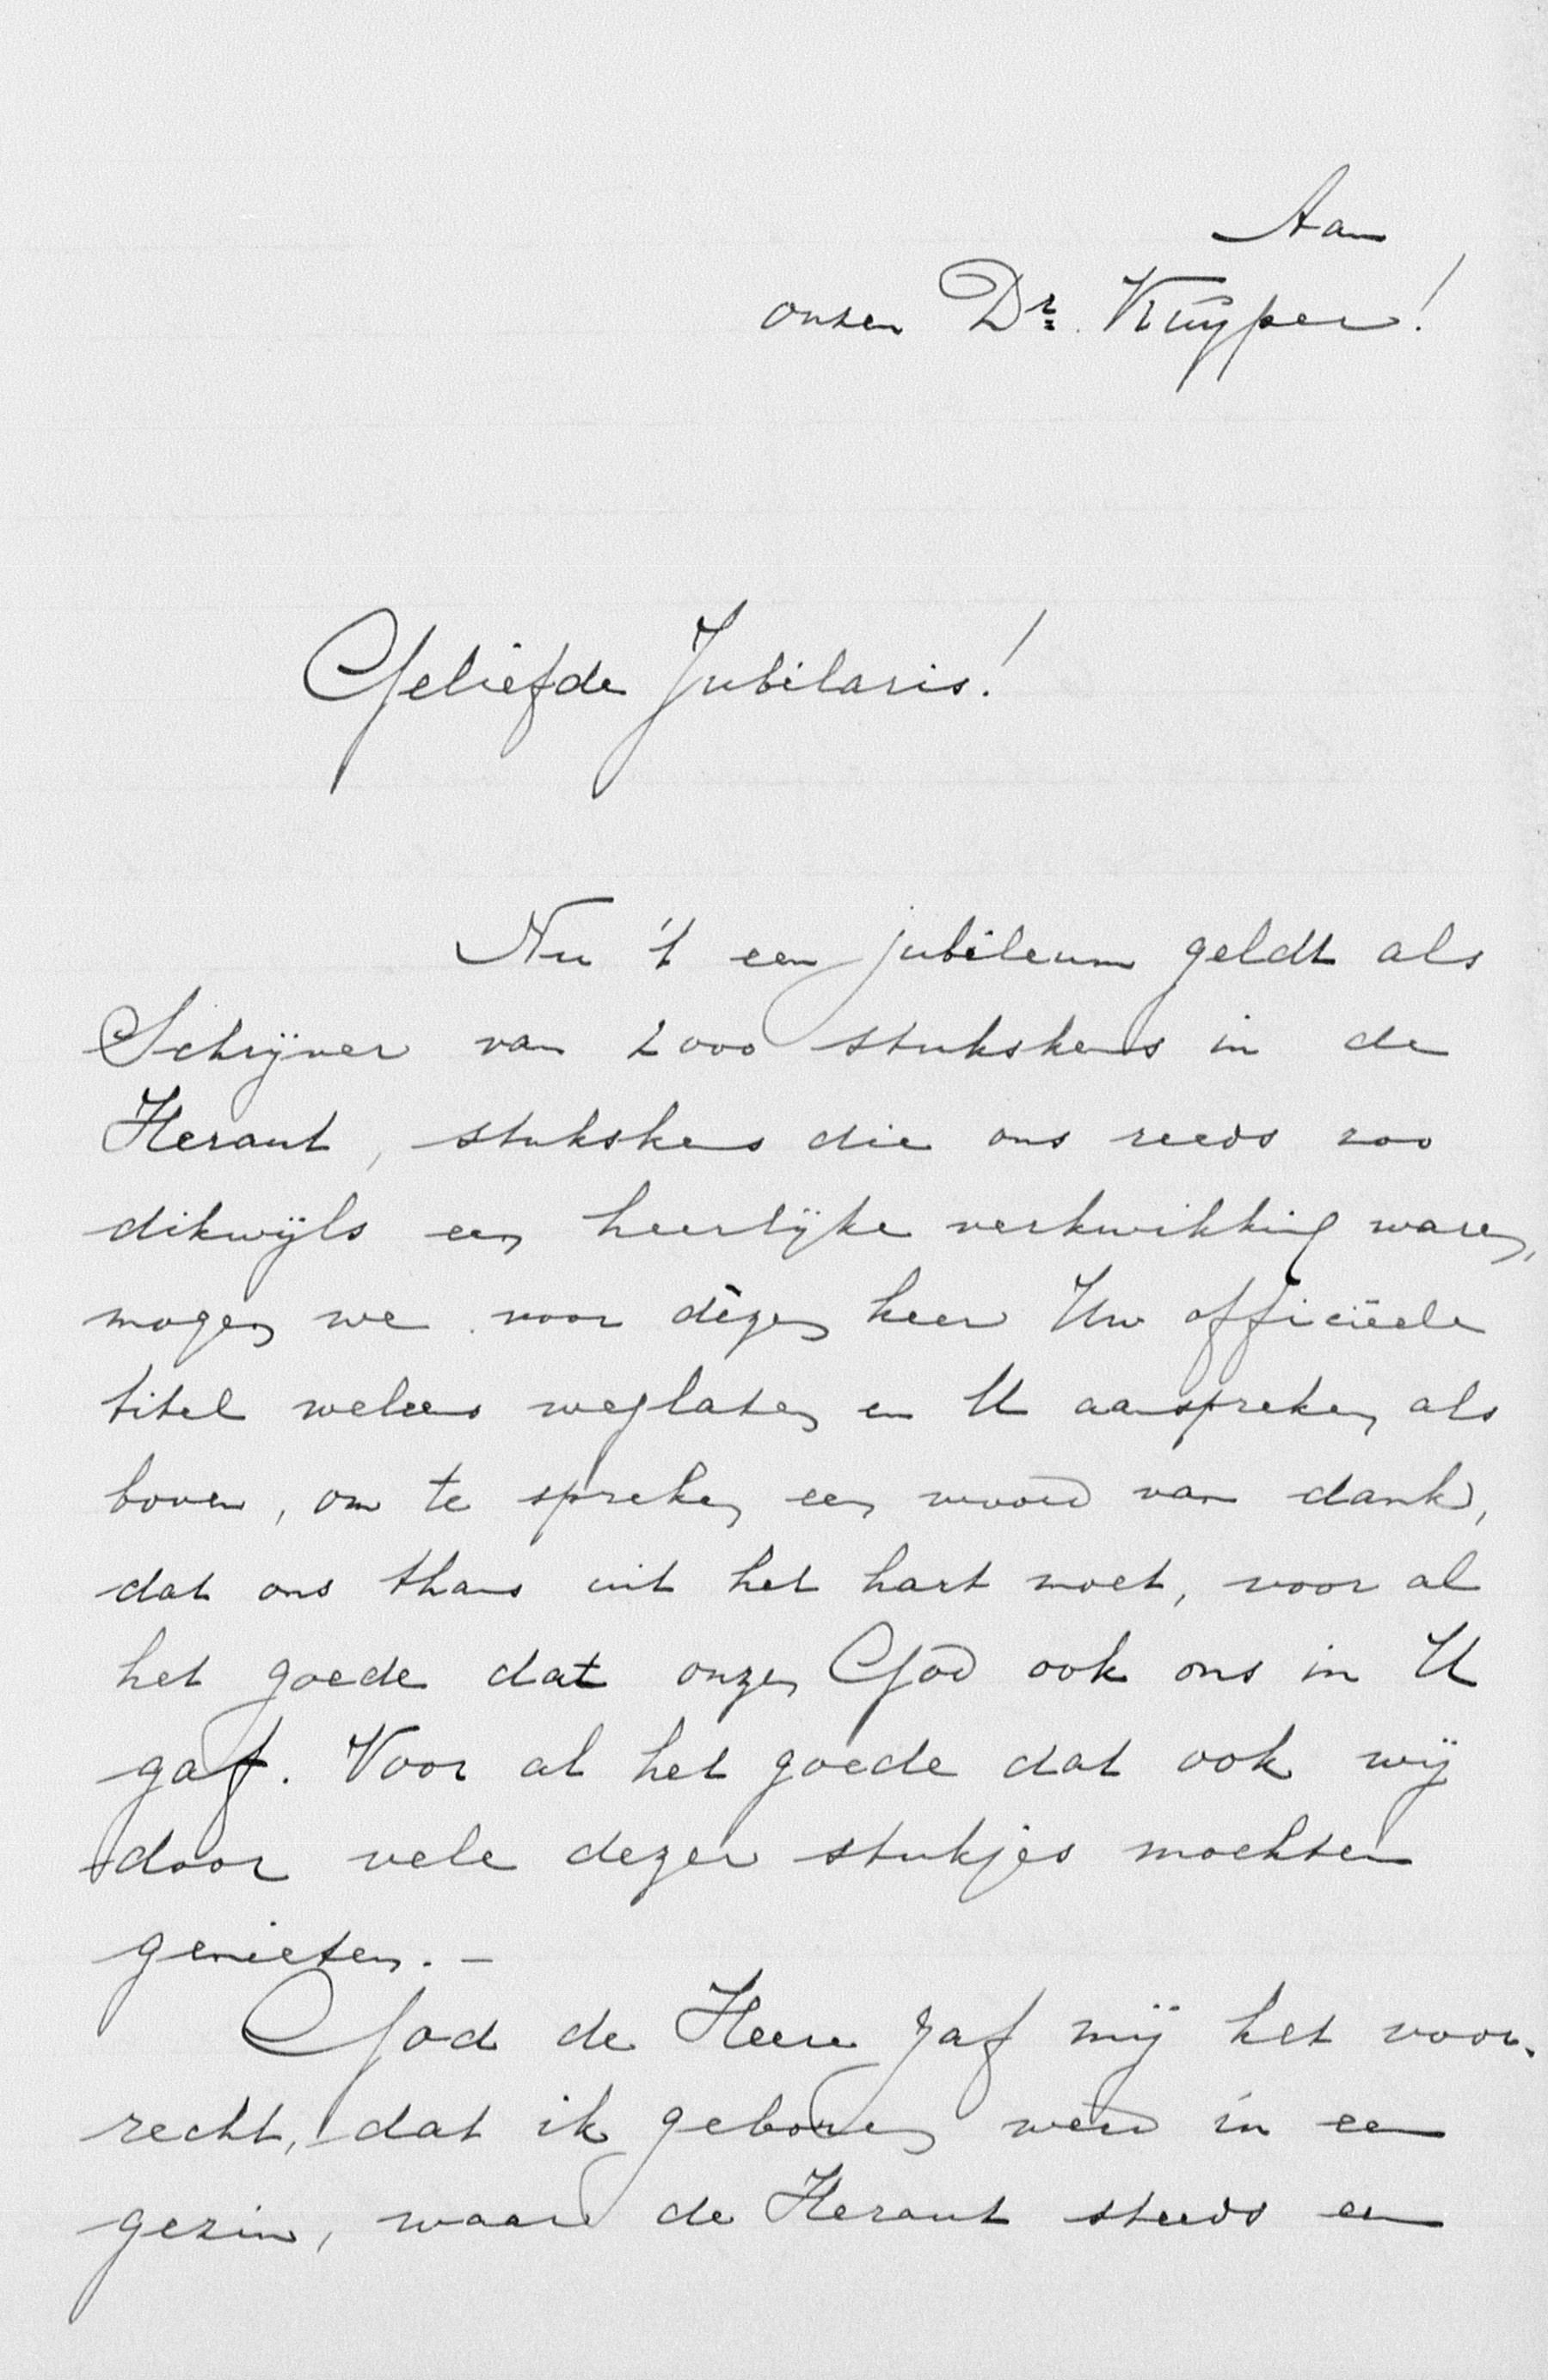 Aan
onzen Dr. Kuyper!
Geliefde Jubilaris!
Nu 't een jubileum geldt als
Schrijver van 2000 stukskens in de
Heraut, stukskens die ons reeds zoo
dikwijls een heerlijke verkwikking waren,
mogen we voor dézen keer Uw officiëele
titel weleens weglaten en U aanspreken als
boven, om te spreken een woord van dank,
dat ons thans uit het hart moet, voor al
het goede dat onzen God ook ons in U
gaf. Voor al het goede dat ook wij
door vele dezer stukjes mochten
genieten. –
God de Heere gaf mij het voor-
recht, dat ik geboren werd in een
gezin, waar de Heraut steeds een